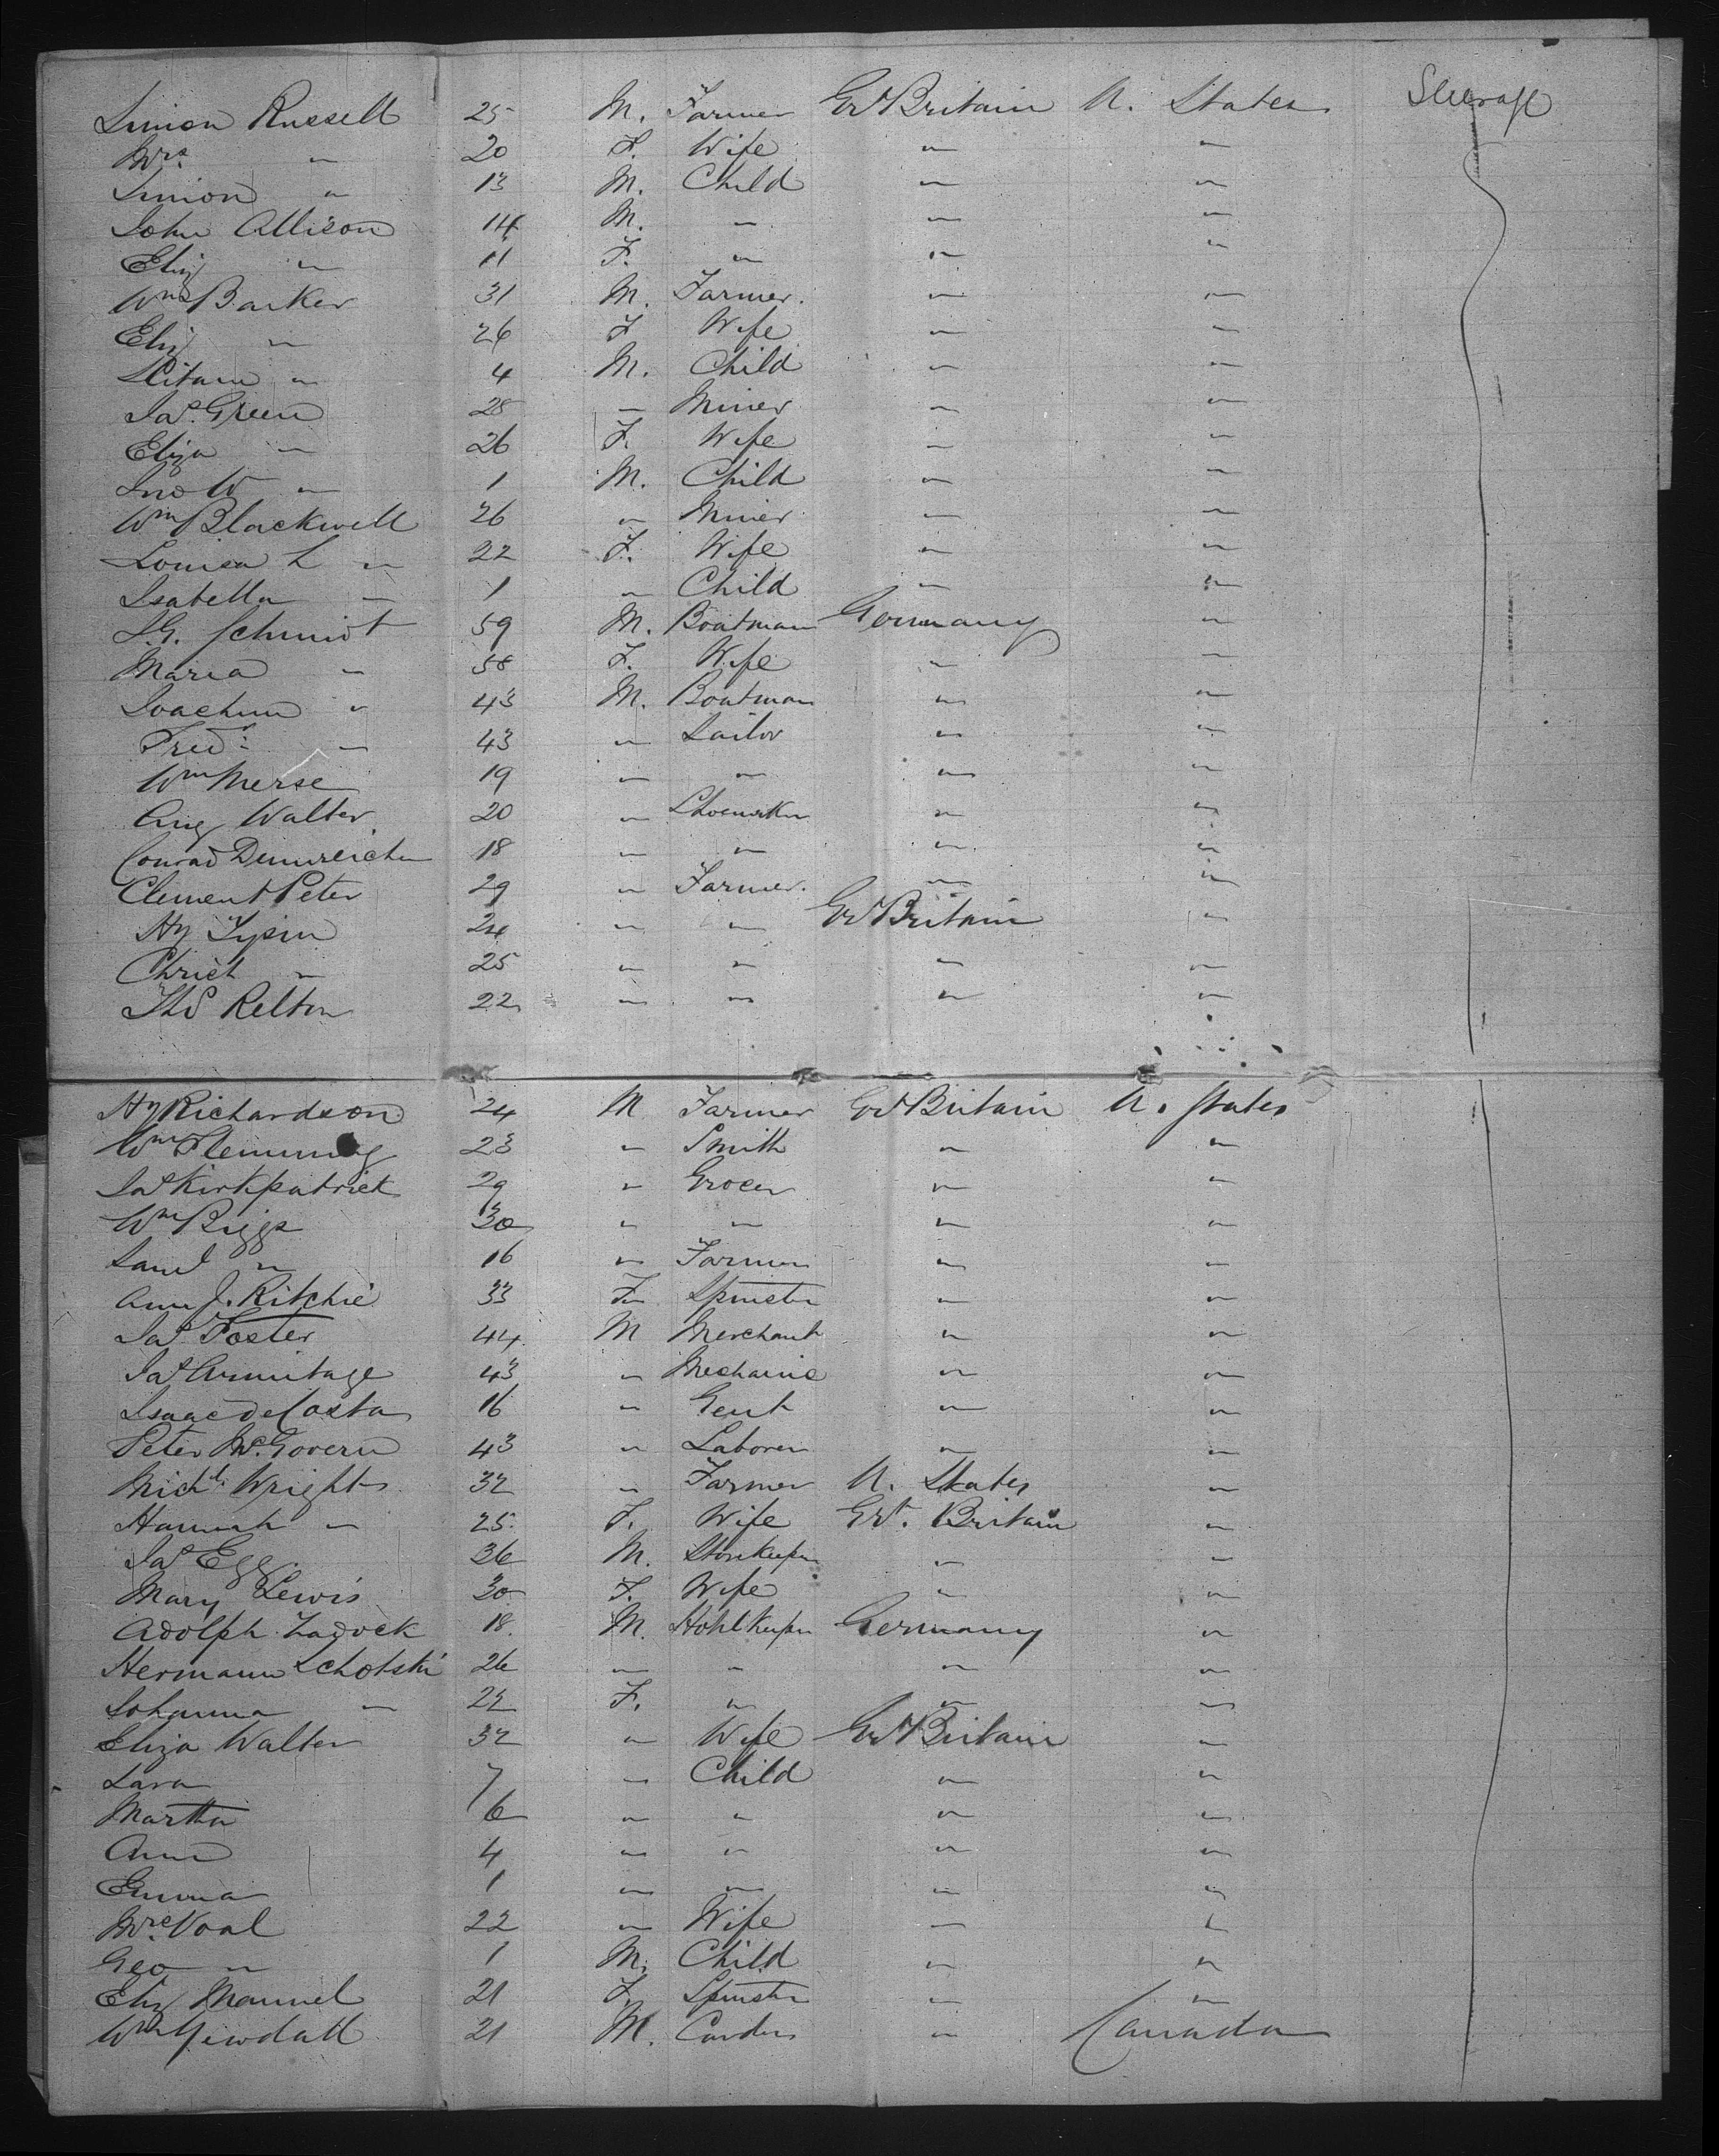 Simion Russell 25 M. Farmer Gt Britain U. States Steerage
Mrs. " 20 F. Wife " "
Simion " 13 M. Child " "
John Allison 14 M. " " "
Eliz " 11 F. " " "
Wm Barker 31 M. Farmer. " "
Eliz " 26 F Wife " "
" 4 M. Child " "
Jas. Green 28 " Miner " "
Eliza " 26 F. Wife " "
Jno W " 1 M. Child " "
Wm Blackwell 26 " Miner " "
Louisa L " 22 F. Wife " "
Isabella " 1 " Child " "
J.G. Schmidt 59 M. Boatman Germany "
Maria " 58 F. Wife " "
Joachim " 43 M. Boatman " "
Fredr. " 43 " Sailor " "
Wm Merse 19 " " " "
Aug Walter 20 " Shoemaker " "
Conrad 18 " " " "
Clement Peter 29 " Farmer. " "
Hy 24 " " Gt Britain "
Christ " 25 " " " "
Ths Relton 22 " " " "
Hy Richardson 24 M Farmer Gt Britain U. States
Wm Flemming 23 " Smith " "
Jas Kirkpatrick 29 " Grocer " "
Wm Biggs 30 " " " "
Saml " 16 " Farmer " "
Ann J. Ritchie 33 F. Spinster " "
Jas Foster 44 M Merchant " "
Jas Armitage 43 " Mechanic " "
Isaac de Costa 16 " Gent " "
Peter McGovern 43 " Laborer " "
Michl. Wright 32 " Farmer U. States "
Hannah " 25 F. Wife Gt. Britain "
Jas Egg 36 M. Storekeeper " "
Mary Lewis 30 F. Wife " "
Adolph Zadock 18. M. Hotelkeeper Germany "
Hermann Schotski 26 " " " "
Johanna " 22 F. " " "
Eliza Walter 32 " Wife Gt Britain "
Sara 7 " Child " "
Martha 6 " " " "
Ann 4 " " " "
Emma 1 " " " "
Mrs. Voal 22 " Wife " "
Geo " 1 M. Child " "
Eliz Mannel 21 F. Spinster " "
Wm Yewdall 21 M. Carder " Canada